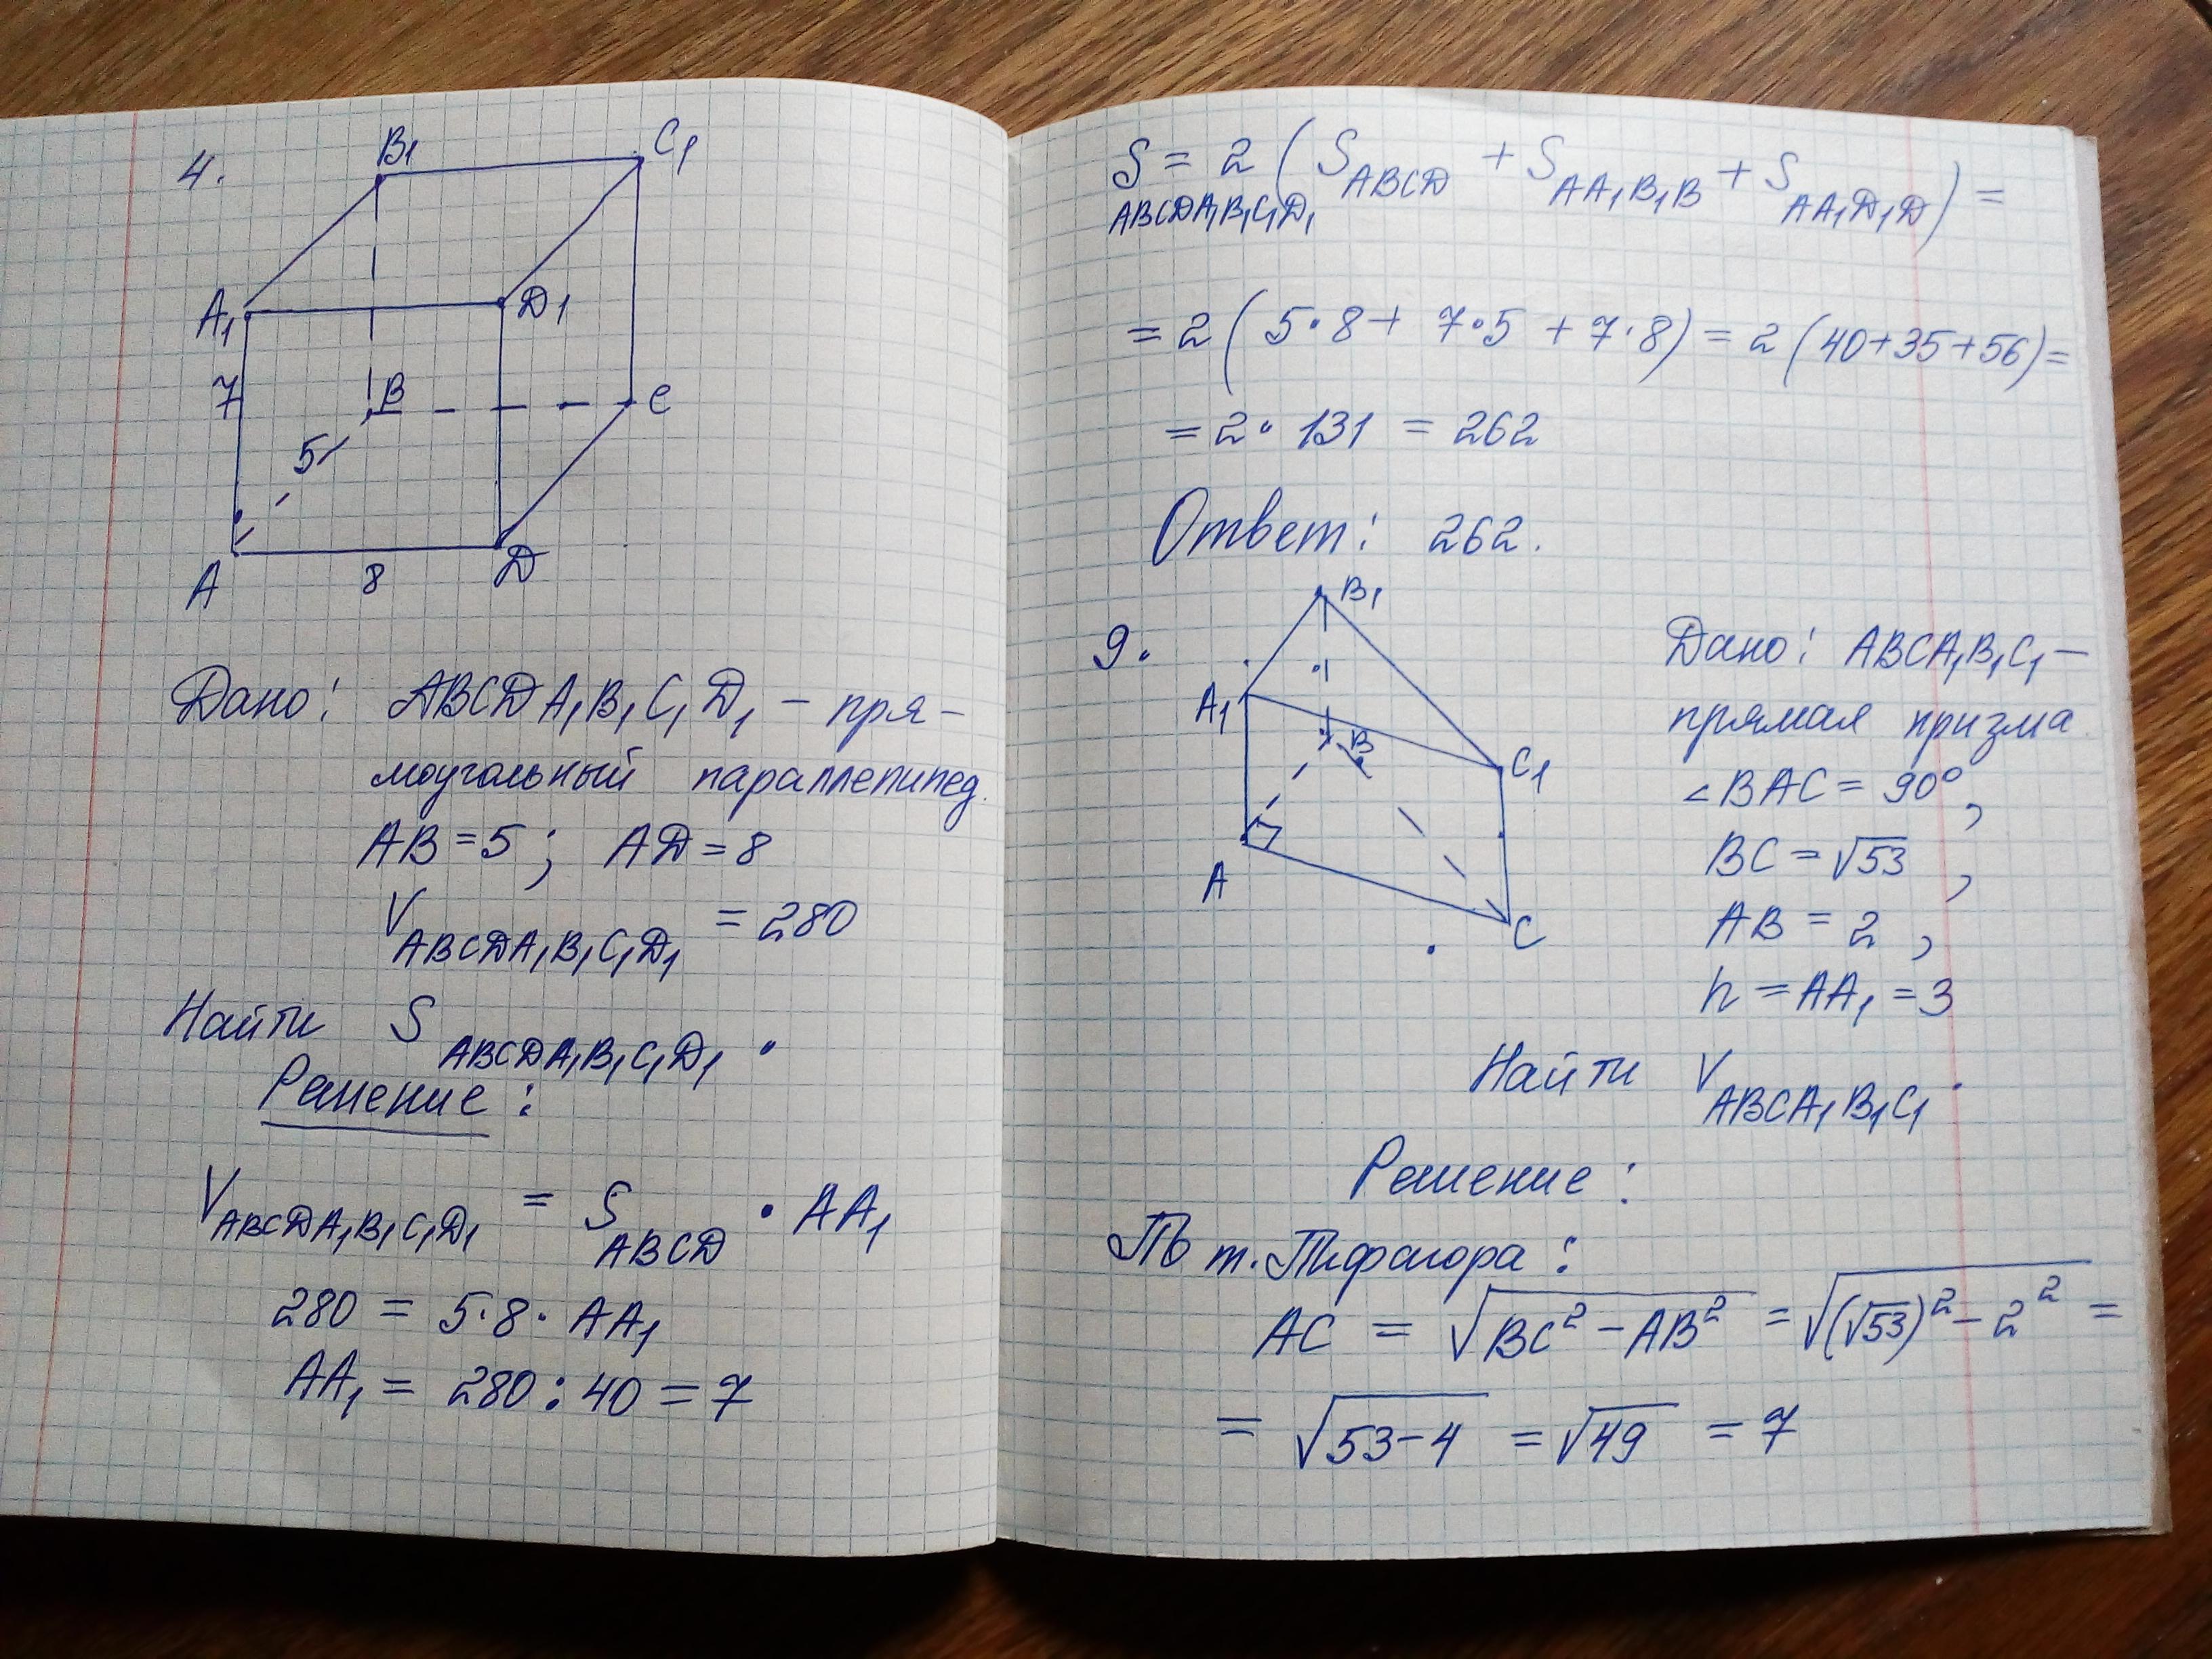 4.
B₁ C₁
A₁ D₁
7 B C
5
A 8 D
Дано: ABCDA₁B₁C₁D₁ – пря-
моугольный параллепипед.
AB = 5; AD = 8
V ABCDA₁B₁C₁D₁ = 280
Найти S ABCDA₁B₁C₁D₁.
Решение:
V ABCDA₁B₁C₁D₁ = S ABCD · AA₁
280 = 5·8· AA₁
AA₁ = 280 : 40 = 7
S ABCDA₁B₁C₁D₁ = 2 (S ABCD + S AA₁B₁B + S AA₁D₁D) =
= 2 ( 5·8 + 7·5 + 7·8) = 2 (40+35+56) =
= 2 · 131 = 262
Ответ: 262.
9.
B₁
A₁ B C₁
A C
Дано: ABCA₁B₁C₁ –
прямая призма.
∠BAC = 90°,
BC = √53,
AB = 2,
h = AA₁ = 3
Найти V ABCA₁B₁C₁.
Решение:
По т. Пифагора:
AC = √(BC² – AB²) = √((√53)² – 2²) =
= √(53–4) = √49 = 7